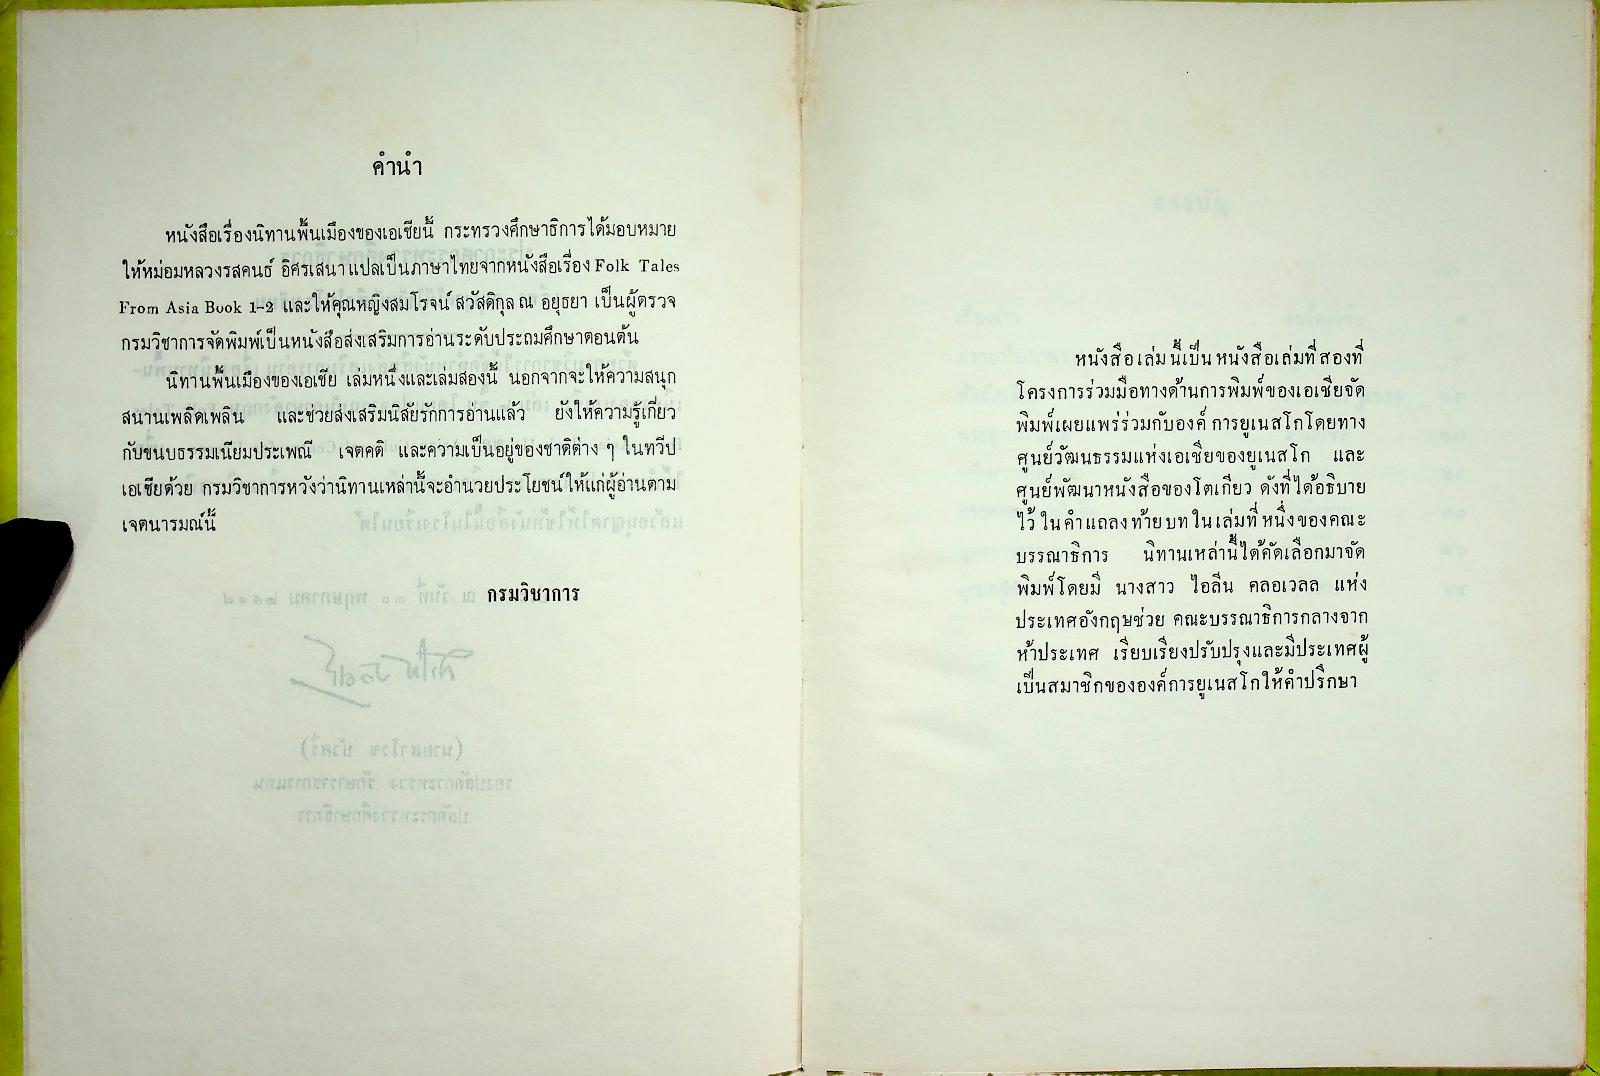 คำนำ
หนังสือเรื่องนิทานพื้นเมืองของเอเชียนี้ กระทรวงศึกษาธิการได้มอบหมาย
ให้หม่อมหลวงรสคนธ์ อิศรเสนา แปลเป็นภาษาไทยจากหนังสือเรื่อง Folk Tales
From Asia Book 1-2 และให้คุณหญิงสมโรจน์ สวัสดิกุล ณ อยุธยา เป็นผู้ตรวจ
กรมวิชาการจัดพิมพ์เป็นหนังสือส่งเสริมการอ่านระดับประถมศึกษาตอนต้น
นิทานพื้นเมืองของเอเชีย เล่มหนึ่งและเล่มสองนี้ นอกจากจะให้ความสนุก
สนานเพลิดเพลิน และช่วยส่งเสริมนิสัยรักการอ่านแล้ว ยังให้ความรู้เกี่ยว
กับขนบธรรมเนียมประเพณี เจตคติ และความเป็นอยู่ของชาติต่าง ๆ ในทวีป
เอเซียด้วย กรมวิชาการหวังว่านิทานเหล่านี้จะอำนวยประโยชน์ให้แก่ผู้อ่านตาม
เจตนารมณ์นี้
กรมวิชาการ
หนังสือเล่มนี้เป็นหนังสือเล่มที่สองที่
โครงการร่วมมือทางด้านการพิมพ์ของเอเชียจัด
พิมพ์เผยแพร่ร่วมกับองค์การยูเนสโกโดยทาง
ศูนย์วัฒนธรรมแห่งเอเชียของยูเนสโก และ
ศูนย์พัฒนาหนังสือของโตเกียว ดังที่ได้อธิบาย
ไว้ในคำแถลงท้ายบทในเล่มที่หนึ่งของคณะ
บรรณาธิการ นิทานเหล่านี้ได้คัดเลือกมาจัด
พิมพ์โดยมี นางสาว ไอลีน คลอเวลล แห่ง
ประเทศอังกฤษช่วย คณะบรรณาธิการกลางจาก
ห้าประเทศ เรียบเรียงปรับปรุงและมีประเทศผู้
เป็นสมาชิกขององค์การยูเนสโกให้คำปรึกษา